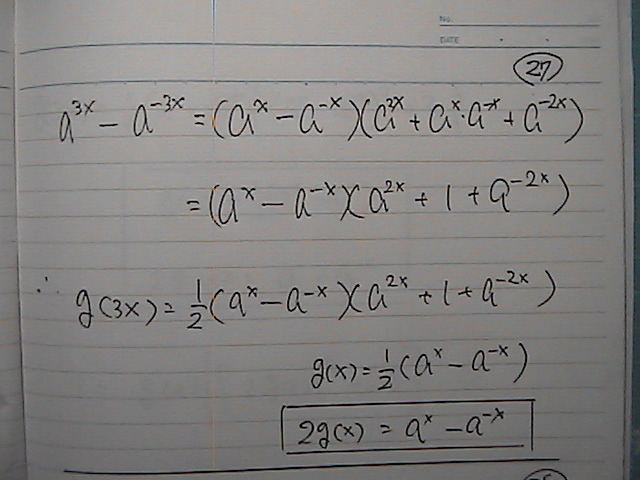 No.
DATE
27
a^{3x} - a^{-3x} = (a^x - a^{-x})(a^{2x} + a^x · a^{-x} + a^{-2x})
= (a^x - a^{-x})(a^{2x} + 1 + a^{-2x})
∴ g(3x) = \frac{1}{2}(a^x - a^{-x})(a^{2x} + 1 + a^{-2x})
g(x) = \frac{1}{2}(a^x - a^{-x})
2g(x) = a^x - a^{-x}